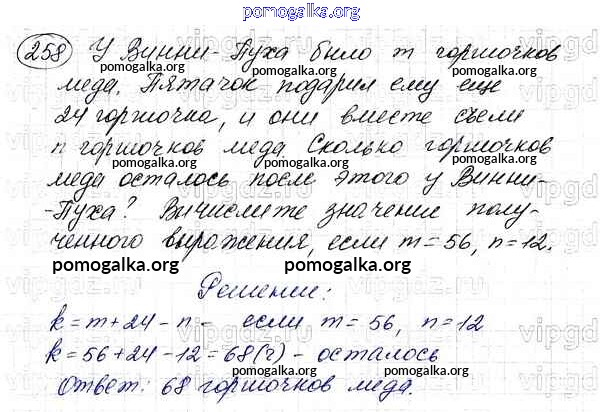 pomogalka.org
258 У Винни-Пуха было m горшочков
pomogalka.org pomogalka.org
меда. Пятачок подарил ему еще
24 горшочка, и они вместе съели
pomogalka.org pomogalka.org
n горшочков меда Сколько горшочков
меда осталось после этого у Винни-
-Пуха? Вичислите значение полу-
ченного выражения, если m = 56, n = 12.
pomogalka.org pomogalka.org
Решение:
k = m + 24 - n - если m = 56, n = 12
k = 56 + 24 - 12 = 68 (г) - осталось
Ответ: 68 горшочков меда.
pomogalka.org
vipgdz.ru